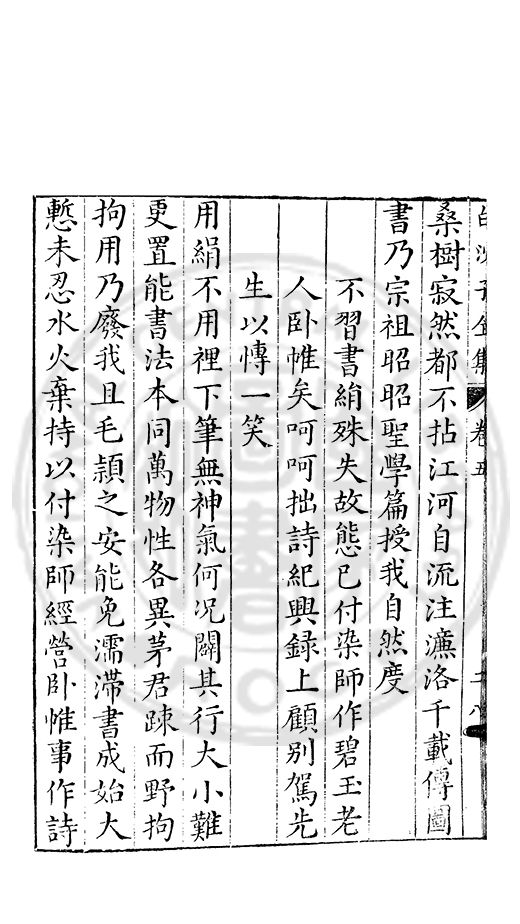 白沙子全集 卷五
桑樹寂然都不拈江河自流注濂洛千載傳圖
書乃宗祖昭昭聖學篇授我自然度
不習書絹殊失故態已付染師作碧玉老
人卧帷矣呵呵拙詩紀興録上顧别駕先
生以愽一笑
用絹不用裡下筆無神氣何况闊其行大小難
更置能書法本同萬物性各異茅君踈而野拘
拘用乃廢我且毛頴之安能免濡滯書成始大
慙未忍水火棄持以付染師經營卧帷事作詩